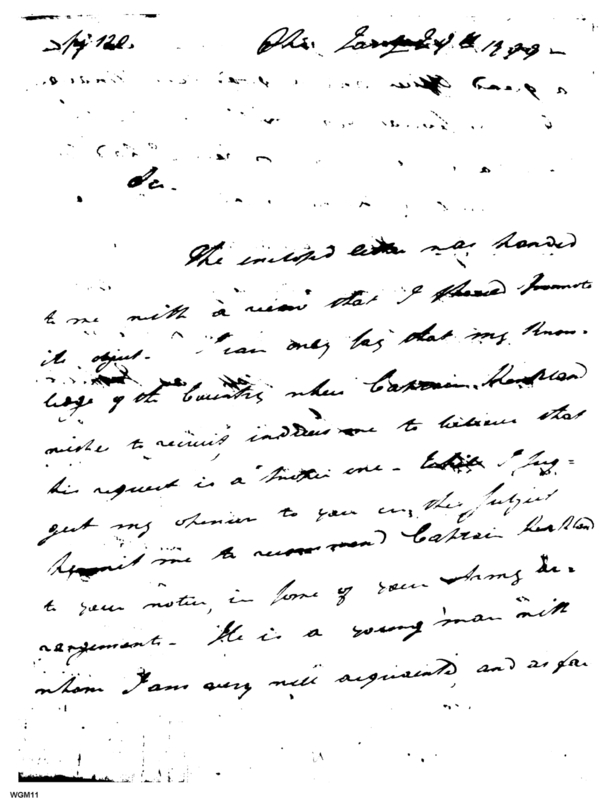 Phi. January 29th 1799 -
Sir.
The inclosed letter was handed
to me with a view that I should promote
its object. I can only say that my Know-
ledge of the Country where Captain
wishes to recruit, induces me to believe that
his request is a one - While I sug=
gest my opinion to you on this subject
permit me to recommend Captain
to your notice, in some of your Army ar=
rangements - He is a young man with
whom I am very well acquainted, and as far
WGM11